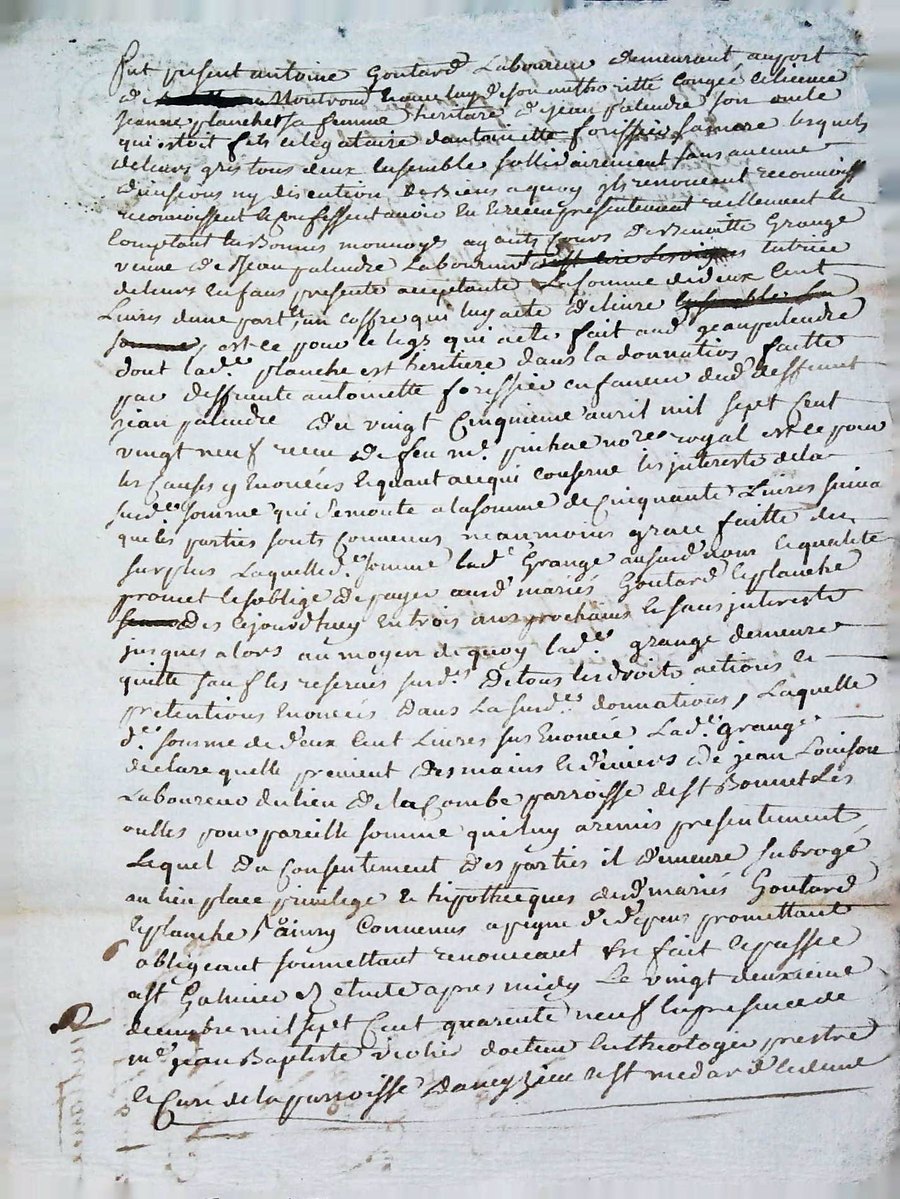 fut present antoine Goutard Laboureur demeurant au port
de Montrond lequel luy de son authoritte congee et licence
jeanne planchet sa femme heritiere de jean palendre son oncle
qui estoit fils et legataire dantoinette forissier sa mere lesquels
de leurs gres tous deux Ensemble sollidairement sans aucune
divisions ny discution de Biens a quoy ils renoncent
reconnoissent et confessent avoir Eu et receu presentement reellement et
Comptant En Bonnes monnoyes ayants Cours de Benoitte Grange
veuve de jean palendre Laboureur tutrice
de leurs Enfans presente acceptante La somme de deux Cent
Livres dune part, un coffre qui luy a ete delivré
et ce pour le legs qui a ete fait aud. jean palendre
dont lad.e planche est heritiere dans la donnations faitte
par deffunte antoinette forissier en faveur dud. deffunt
jean palendre du vingt Cinquieme avril mil sept Cent
vingt neuf receu de feu m.e royal et ce pour
les Causes y Enoncées Et quant a ce qui conserne les interests de la
surd.e somme qui se monte a la somme de Cinquante Livres suivant
que les parties sonts Convenus neanmoins grace faitte du
surplus Laquelle d.e somme lad.e Grange ausurd. nom Et qualité
promet et soblige de payer aud. mariés Goutard Et planche
des Cejourdhuy En trois ans prochains Et sans interests
jusques alors au moyen de quoy lad.e grange demeure
quitte sauf les reserves surd. De tous les droits actions et
pretentions Enoncées Dans La surd.e donnations, Laquelle
d.e somme de deux Cent Livres sus Enoncée Lad.e Grange
declare quelle provient des mains et deniers de jean Louison
Laboureur du lieu de la Combe parroisse de St Bonnet Les
oulles pour pareille somme qui luy a remis presentement
Lequel du Consentement des parties il demeure subrogé
au lieu place privilege et hipotheques desd. mariés Goutard
Et planche ainsy Convenus a peyne de d'epens promettant
obligeant soumettant renonceant &c fait et passé
a St Galmier Et etude apres midy Le vingt deuxieme
decembre mil sept Cent quarente neuf En presence de
m.e jean Baptiste violier docteur En theologie prestre
et Cure de la parroisse et St medard